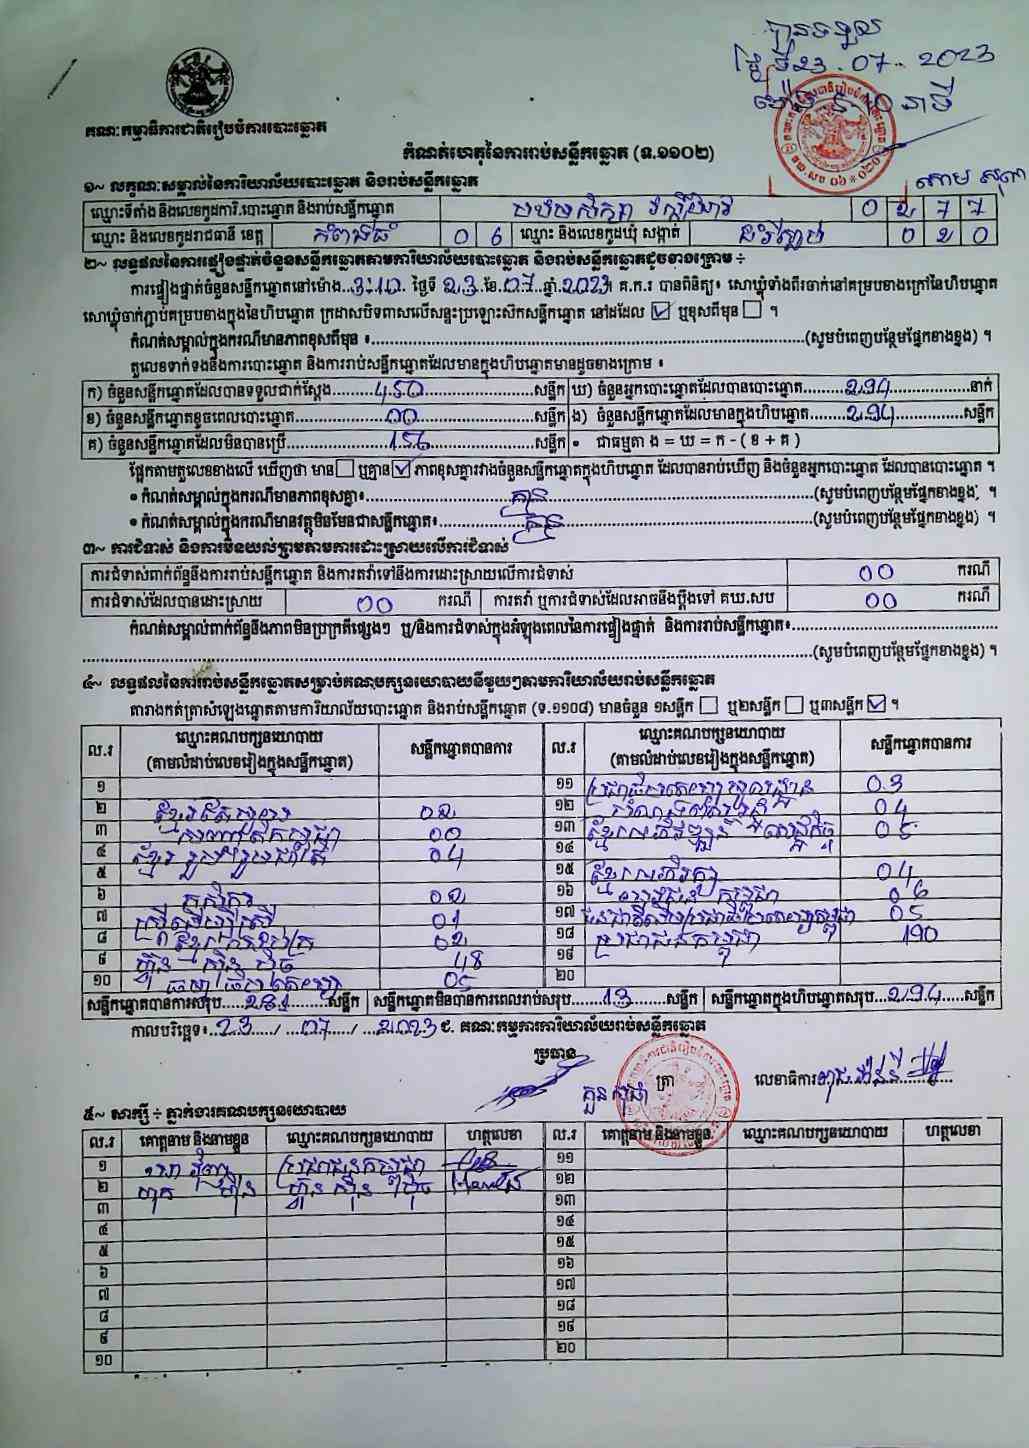 បានទទួល
ថ្ងៃទី23.07.2023
គណៈកម្មាធិការជាតិរៀបចំការបោះឆ្នោត
កំណត់ហេតុនៃការរាប់សន្លឹកឆ្នោត (ទ.១១០២)
១~ លក្ខណៈសម្គាល់នៃការិយាល័យបោះឆ្នោត និងរាប់សន្លឹកឆ្នោត
ឈ្មោះទីតាំង និងលេខកូដការិ.បោះឆ្នោត និងរាប់សន្លឹកឆ្នោត 0 2 7 7
ឈ្មោះ និងលេខកូដរាជធានី ខេត្ត កំពង់ធំ 0 6 ឈ្មោះ និងលេខកូដឃុំ សង្កាត់ 0 2 0
២~ លទ្ធផលនៃការផ្ទៀងផ្ទាត់ចំនួនសន្លឹកឆ្នោតតាមការិយាល័យបោះឆ្នោត និងរាប់សន្លឹកឆ្នោតដូចខាងក្រោម ÷
ការផ្ទៀងផ្ទាត់ចំនួនសន្លឹកឆ្នោតនៅម៉ោង..3:10. ថ្ងៃទី 23.ខែ.07.ឆ្នាំ.2023។ គ.ក.រ បានពិនិត្យ៖ សោឃ្លុំទាំងពីរចាក់នៅគម្របខាងក្រៅនៃហិបឆ្នោត
សោឃ្លុំចាក់ភ្ជាប់គម្របខាងក្នុងនៃហិបឆ្នោត ក្រដាសបិទពាសលើសន្ទះប្រឡោះសឹកសន្លឹកឆ្នោត នៅដដែល ☑ ឬខុសពីមុន ☐ ។
កំណត់សម្គាល់ក្នុងករណីមានភាពខុសពីមុន ៖ (សូមបំពេញបន្ថែមផ្នែកខាងខ្នង) ។
តួលេខទាក់ទងនឹងការបោះឆ្នោត និងការរាប់សន្លឹកឆ្នោតដែលមានក្នុងហិបឆ្នោតមានដូចខាងក្រោម ៖
ក) ចំនួនសន្លឹកឆ្នោតដែលបានទទួលជាក់ស្តែង 450 សន្លឹក ឃ) ចំនួនអ្នកបោះឆ្នោតដែលបានបោះឆ្នោត 294 នាក់
ខ) ចំនួនសន្លឹកឆ្នោតខូចពេលបោះឆ្នោត 00 សន្លឹក ង) ចំនួនសន្លឹកឆ្នោតដែលមានក្នុងហិបឆ្នោត 294 សន្លឹក
គ) ចំនួនសន្លឹកឆ្នោតដែលមិនបានប្រើ 156 សន្លឹក • ជាធម្មតា ង = ឃ = ក - ( ខ + គ )
ផ្អែកតាមតួលេខខាងលើ ឃើញថា មាន ☐ ឬគ្មាន ☑ ភាពខុសគ្នារវាងចំនួនសន្លឹកឆ្នោតក្នុងហិបឆ្នោត ដែលបានរាប់ឃើញ និងចំនួនអ្នកបោះឆ្នោត ដែលបានបោះឆ្នោត ។
• កំណត់សម្គាល់ក្នុងករណីមានភាពខុសគ្នា៖ គ្មាន (សូមបំពេញបន្ថែមផ្នែកខាងខ្នង) ។
• កំណត់សម្គាល់ក្នុងករណីមានវត្ថុមិនមែនជាសន្លឹកឆ្នោត៖ គ្មាន (សូមបំពេញបន្ថែមផ្នែកខាងខ្នង) ។
៣~ ការជំទាស់ និងការមិនយល់ព្រមតាមការដោះស្រាយលើការជំទាស់
ការជំទាស់ពាក់ព័ន្ធនឹងការរាប់សន្លឹកឆ្នោត និងការតវ៉ាទៅនឹងការដោះស្រាយលើការជំទាស់ 00 ករណី
ការជំទាស់ដែលបានដោះស្រាយ 00 ករណី ការតវ៉ា ឬការជំទាស់ដែលអាចនឹងប្តឹងទៅ គឃ.សប 00 ករណី
កំណត់សម្គាល់ពាក់ព័ន្ធនឹងភាពមិនប្រក្រតីផ្សេងៗ ឬ/និងការជំទាស់ក្នុងអំឡុងពេលនៃការផ្ទៀងផ្ទាត់ និងការរាប់សន្លឹកឆ្នោត៖
(សូមបំពេញបន្ថែមផ្នែកខាងខ្នង) ។
៤~ លទ្ធផលនៃការរាប់សន្លឹកឆ្នោតសម្រាប់គណបក្សនយោបាយនីមួយៗតាមការិយាល័យរាប់សន្លឹកឆ្នោត
តារាងកត់ត្រាសំឡេងឆ្នោតតាមការិយាល័យបោះឆ្នោត និងរាប់សន្លឹកឆ្នោត (ទ.១១០៨) មានចំនួន ១សន្លឹក ☐ ឬ២សន្លឹក ☐ ឬ៣សន្លឹក ☑ ។
ល.រ ឈ្មោះគណបក្សនយោបាយ (តាមលំដាប់លេខរៀងក្នុងសន្លឹកឆ្នោត) សន្លឹកឆ្នោតបានការ ល.រ ឈ្មោះគណបក្សនយោបាយ (តាមលំដាប់លេខរៀងក្នុងសន្លឹកឆ្នោត) សន្លឹកឆ្នោតបានការ
១ ១១ 03
២ 02 ១២ 04
៣ 00 ១៣ 05
៤ ខ្មែររួបរួមជាតិ 04 ១៤
៥ ១៥ 04
៦ កសិករ 02 ១៦ 06
៧ ស្រ្តីដើម្បីស្ត្រី 01 ១៧ 05
៨ 02 ១៨ ប្រជាជនកម្ពុជា 190
៩ ហ៊្វុនស៊ិនប៉ិច 48 ១៩
១០ ធម្មាធិបតេយ្យ 05 ២០
សន្លឹកឆ្នោតបានការសរុប 281 សន្លឹក សន្លឹកឆ្នោតមិនបានការពេលរាប់សរុប 13 សន្លឹក សន្លឹកឆ្នោតក្នុងហិបឆ្នោតសរុប 294 សន្លឹក
កាលបរិច្ឆេទ៖ 23 / 07 / 2023 ជ. គណៈកម្មការការិយាល័យរាប់សន្លឹកឆ្នោត
ប្រធាន ត្រា លេខាធិការ
៥~ សាក្សី ÷ ភ្នាក់ងារគណបក្សនយោបាយ
ល.រ គោត្តនាម និងនាមខ្លួន ឈ្មោះគណបក្សនយោបាយ ហត្ថលេខា ល.រ គោត្តនាម និងនាមខ្លួន ឈ្មោះគណបក្សនយោបាយ ហត្ថលេខា
១ ប្រជាជនកម្ពុជា ១១
២ ហ៊្វុនស៊ិនប៉ិច ១២
៣ ១៣
៤ ១៤
៥ ១៥
៦ ១៦
៧ ១៧
៨ ១៨
៩ ១៩
១០ ២០